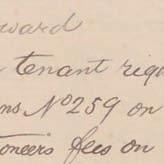 ward
tenant rig
ns No 259 on
ioneers fees on